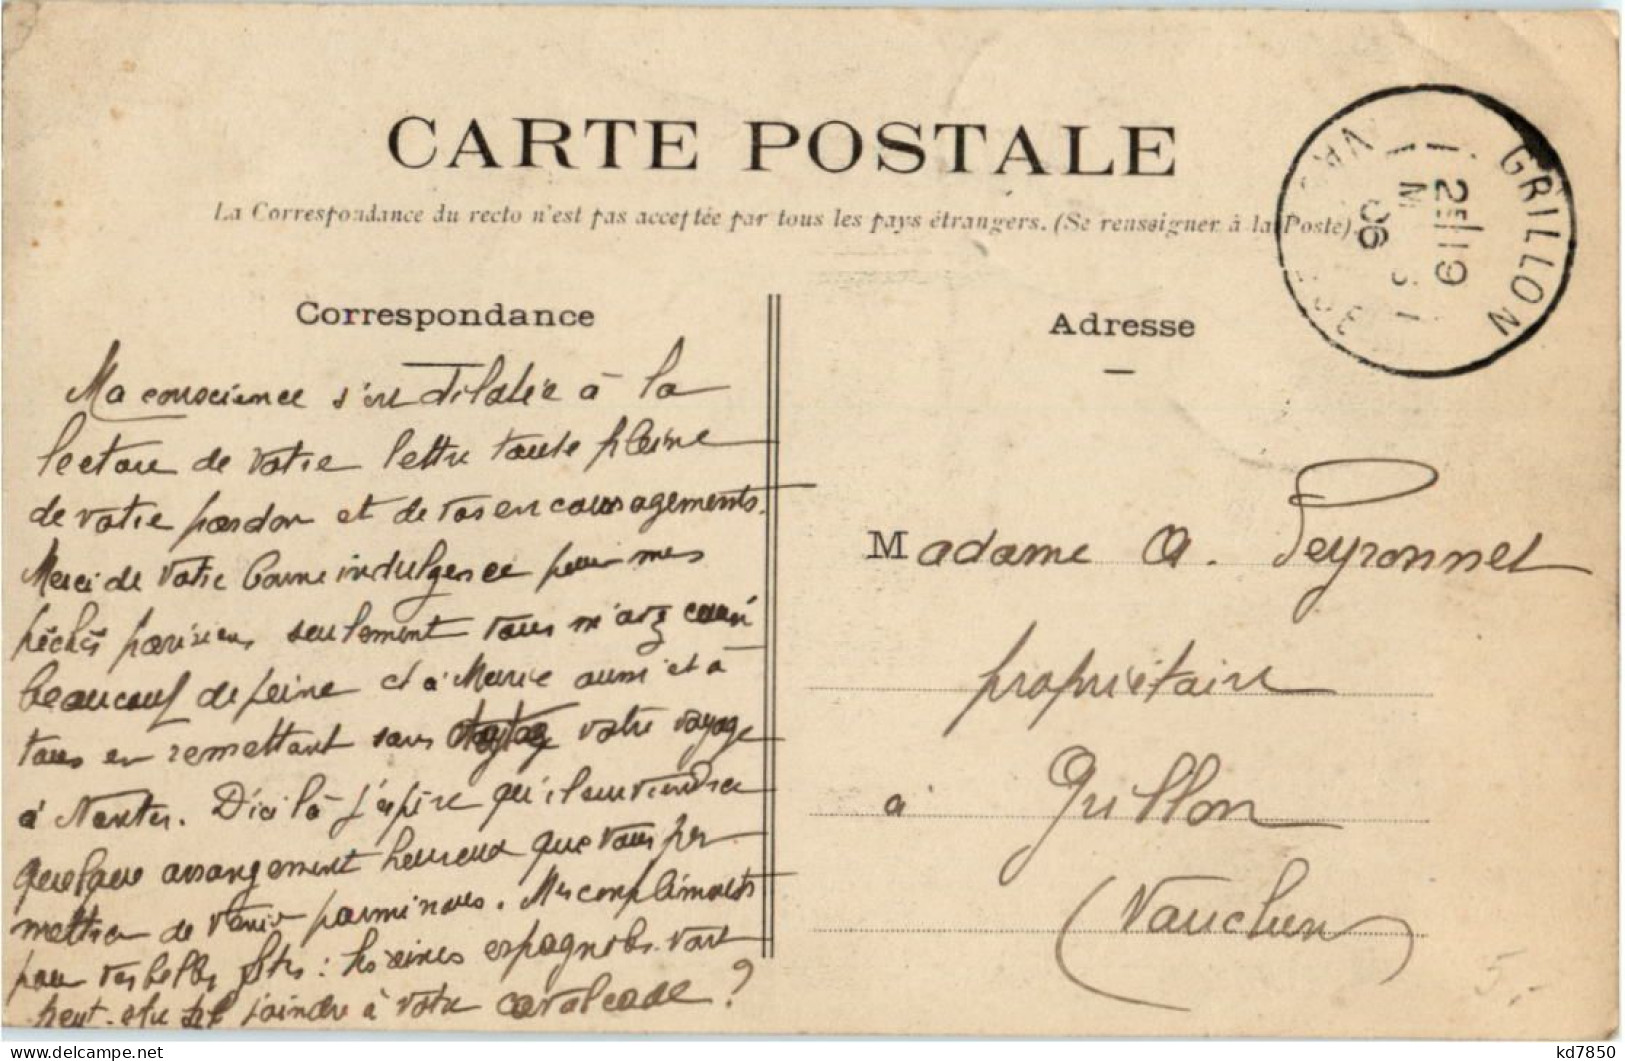 CARTE POSTALE
La Correspondance du recto n'est pas acceptée par tous les pays étrangers. (Se renseigner à la Poste).
GRILLON
25 19
06
Correspondance
Ma conscience s'est dilatée à la
lecture de votre lettre toute pleine
de votre pardon et de vos encouragements.
Merci de votre bonne indulgence pour mes
péchés parisiens seulement vous m'avez causé
beaucoup de peine et à Marie aussi et à
tous en remettant sans votre voyage
à Nantes. D'ici là j'espère qu'il surviendra
quelque arrangement heureux que vous per
mettra de venir parmi nous. Mes compliments
pour vos belles fêtes : les reines espagnoles vont
peut-être se joindre à votre cavalcade ?
Adresse
Madame A. Peyronnet
propriétaire
à Grillon
(Vaucluse)
5,-
kd7850